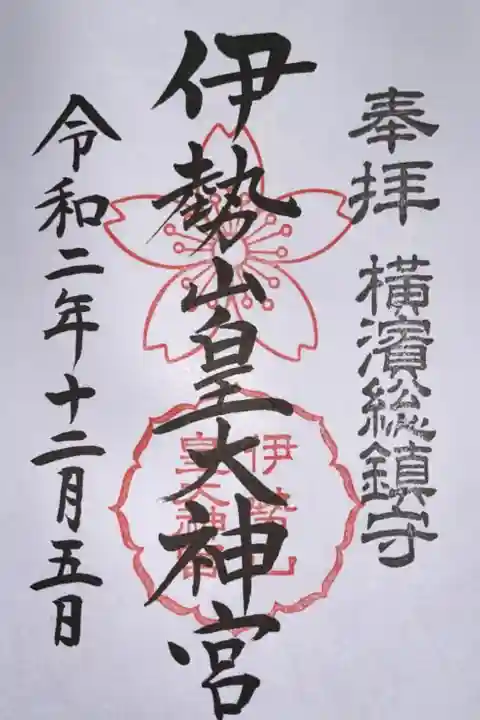 奉拝 横濱総鎮守
伊勢山皇大神宮
伊勢山
皇大神宮
令和二年十二月五日